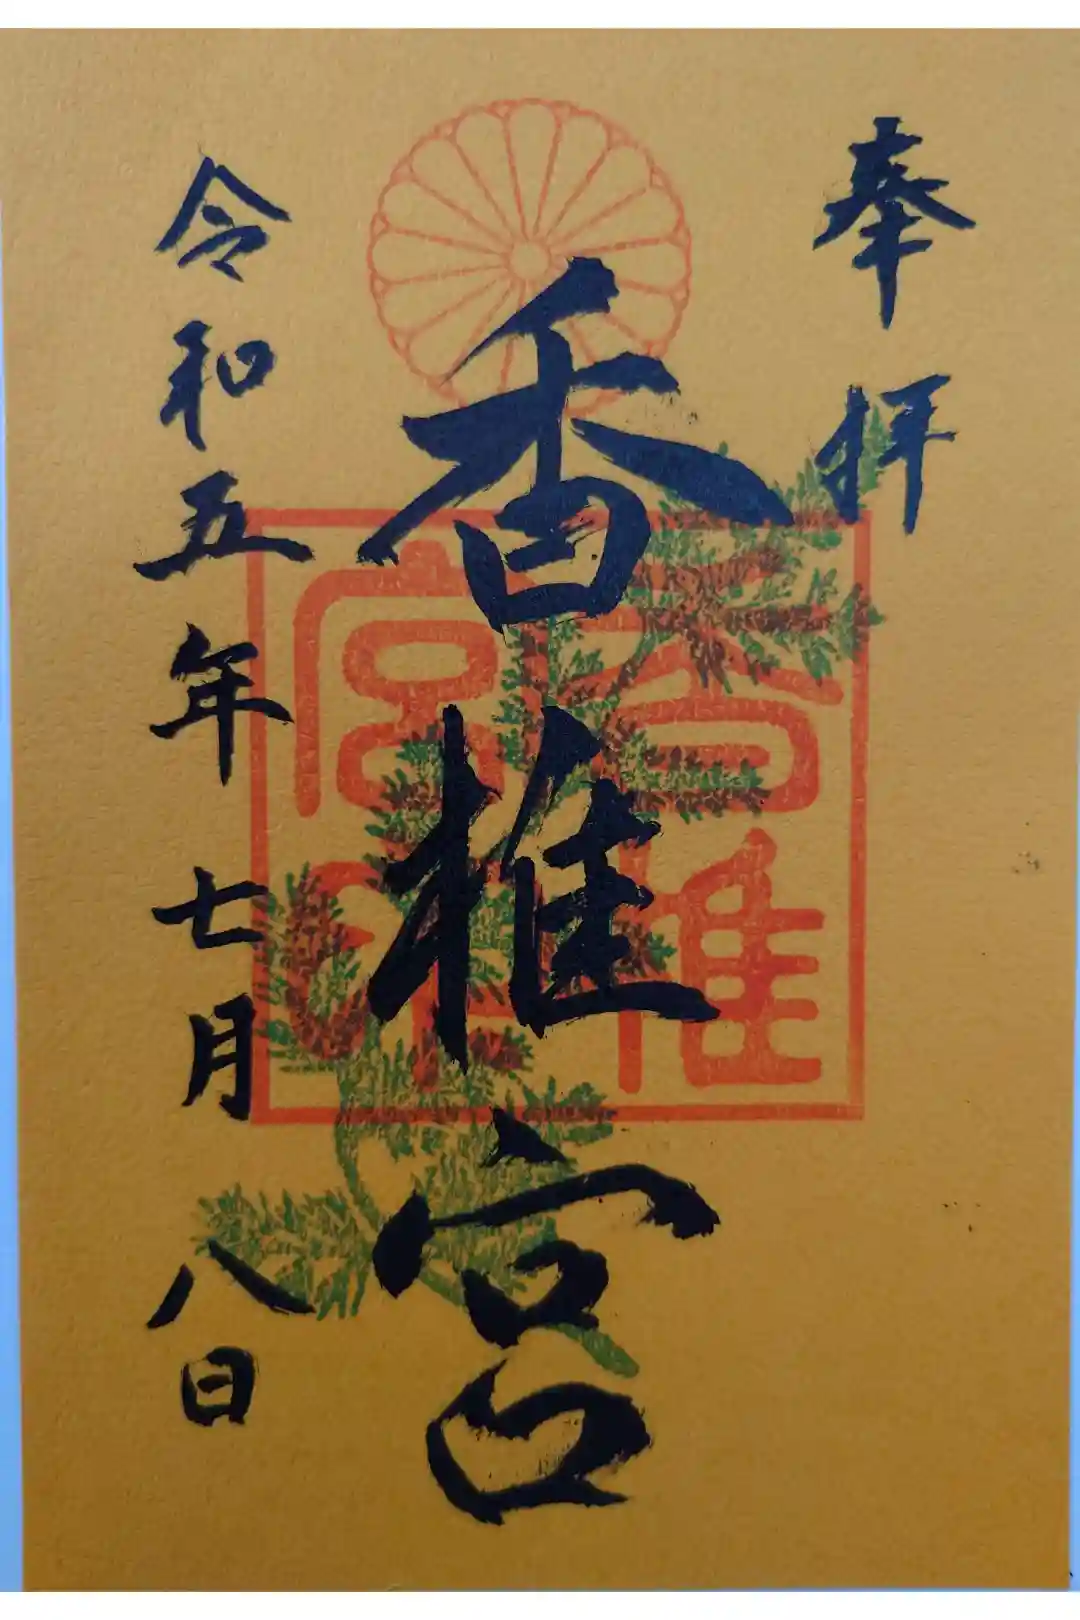 奉拝
香椎宮
香椎宮印
令和五年七月八日